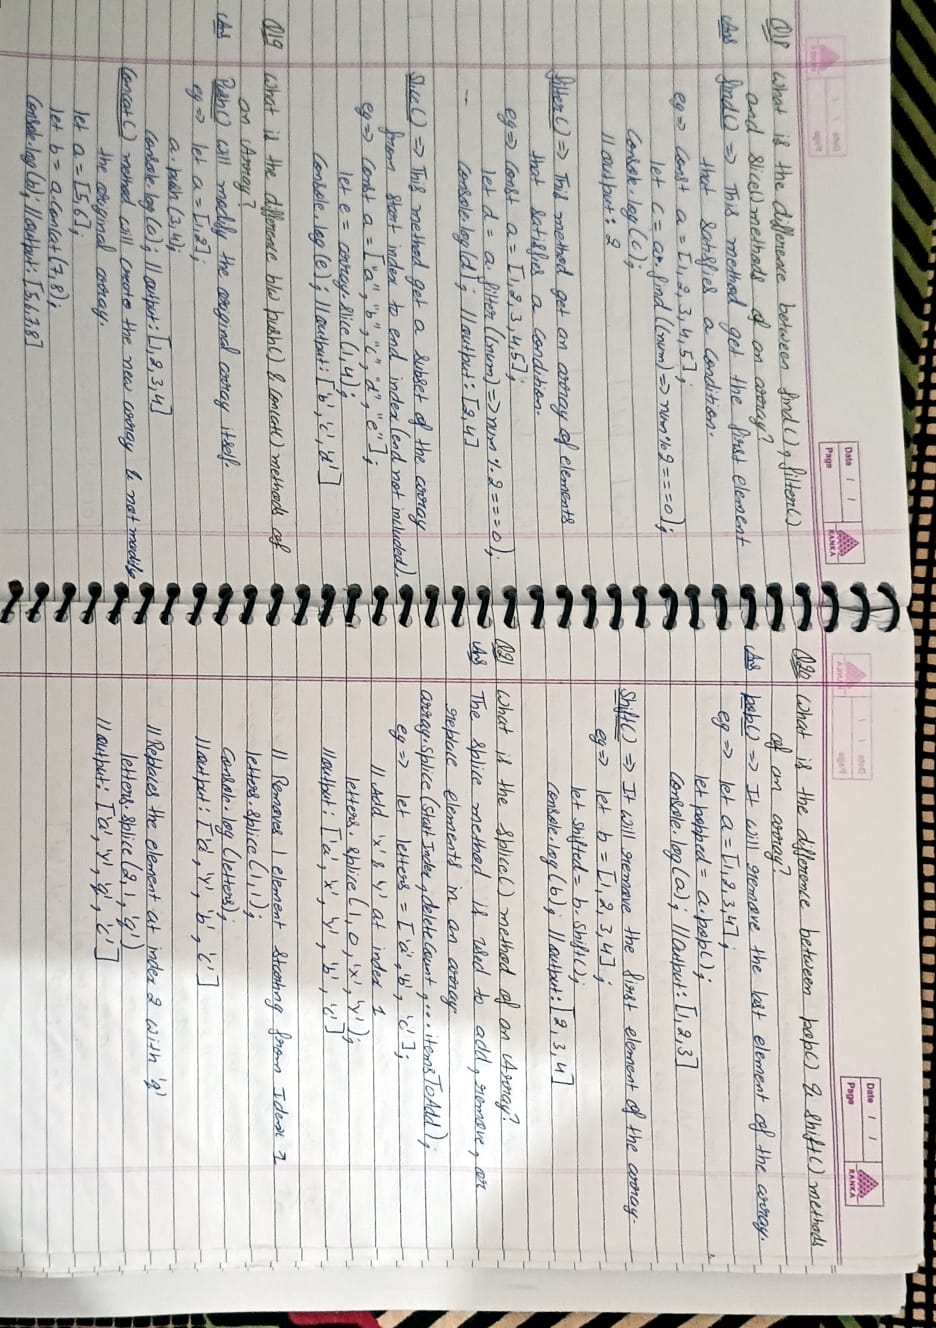 Date / /
Page
RANKA
Q18 What is the difference between find(), filter()
and slice() methods of an array?
Ans find() => This method get the first element
that satisfies a condition.
eg => const a = [1,2,3,4,5];
let c = a.find((num) => num%2===0);
console.log(c);
//output: 2
filter() => This method get an array of elements
that satisfies a condition.
eg => const a = [1,2,3,4,5];
let d = a.filter((num)=>num%2===0);
console.log(d); //output: [2,4]
Slice() => This method get a subset of the array
from start index to end index (end not included).
eg => const a = ["a", "b", "c", "d", "e"];
let e = array.slice(1,4);
console.log(e); //output: ['b','c','d']
Q19 What is the difference b/w push() & concat() methods of
an Array?
Ans Push() will modify the original array itself.
eg => let a = [1,2];
a.push(3,4);
console.log(a); //output: [1,2,3,4]
Concat() method will create the new array & not modify
the original array.
let a = [5,6];
let b = a.concat(7,8);
console.log(b); //output: [5,6,7,8]
Date / /
Page
RANKA
Q20 What is the difference between pop() & shift() methods
of an array?
Ans pop() => It will remove the last element of the array.
eg => let a = [1,2,3,4];
let popped = a.pop();
console.log(a); //output: [1,2,3]
Shift() => It will remove the first element of the array.
eg => let b = [1,2,3,4];
let shifted = b.shift();
console.log(b); //output: [2,3,4]
Q21 What is the Splice() method of an Array?
Ans The Splice method is used to add, remove, or
replace elements in an array.
array.splice(startIndex, deleteCount, ...itemsToAdd);
eg => let letters = ['a', 'b', 'c'];
//Add 'x' & 'y' at index 1
letters.splice(1,0,'x','y');
//output: ['a', 'x', 'y', 'b', 'c']
// Removes 1 element starting from Idex 1
letters.splice(1,1);
console.log(letters);
//output: ['a', 'y', 'b', 'c']
//Replaces the element at index 2 with 'g'
letters.splice(2,1,'g')
//output: ['a', 'y', 'g', 'c']